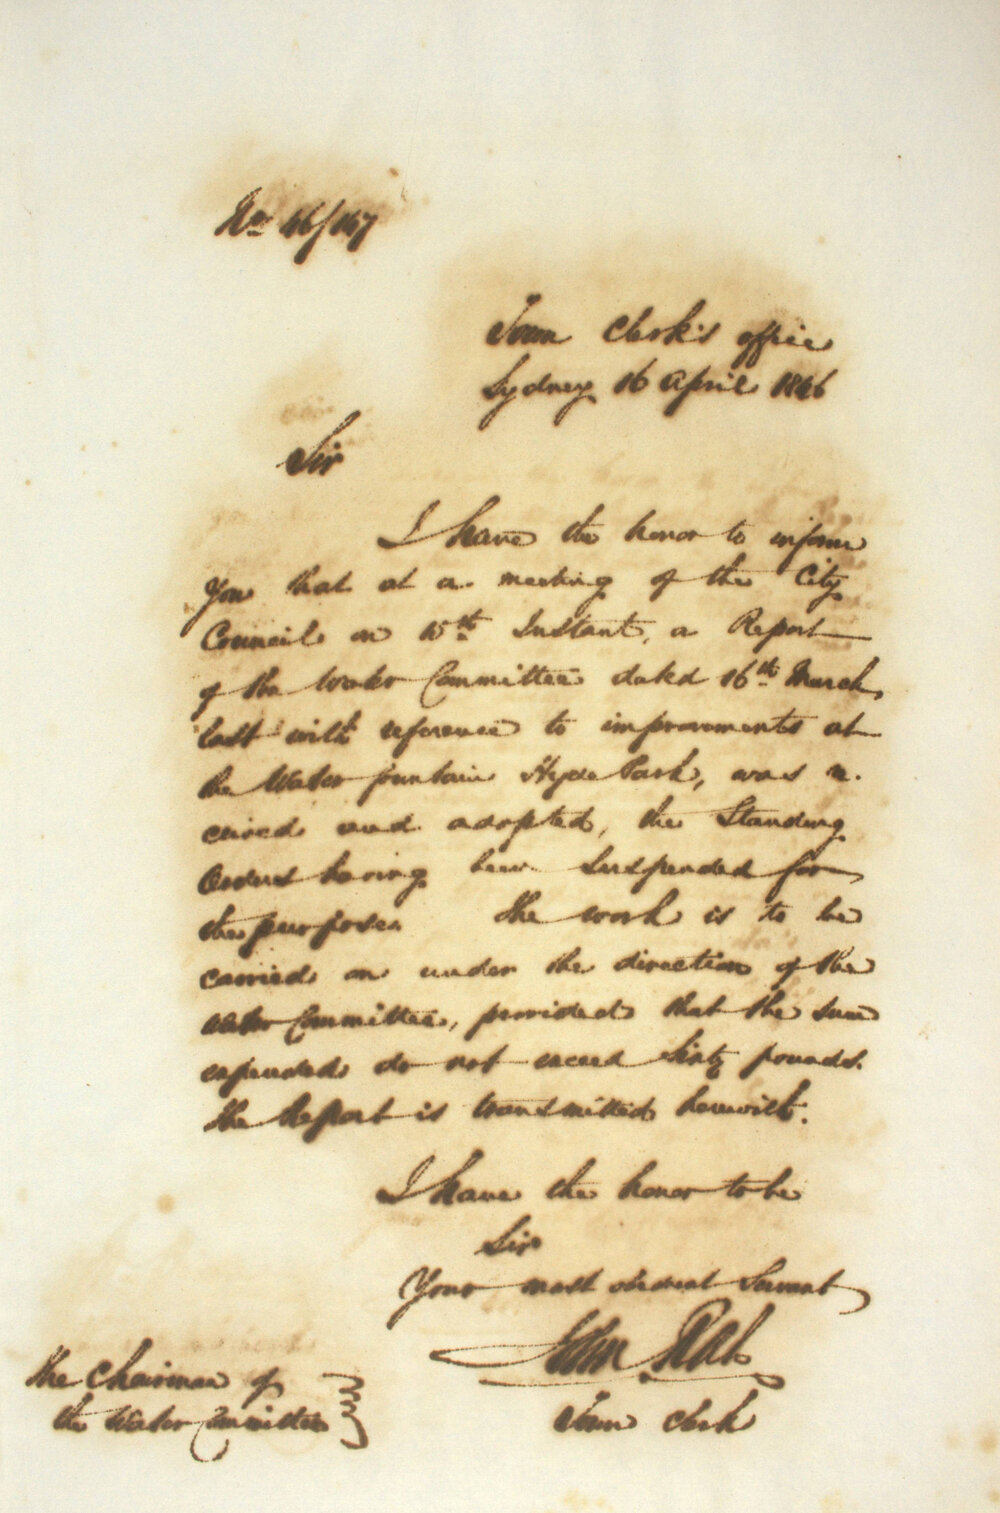 No. 46/167
Town Clerk's Office
Sydney 16 April 1846
Sir
I have the honor to inform
You that at a meeting of the City
Council on 15th Instant, a Report
of the Water Committee dated 16th March,
last with reference to improvements at
the Water fountain Hyde Park, was re-
ceived and adopted, the Standing
Orders having been suspended for
the purpose. The work is to be
carried on under the direction of the
Water Committee, provided that the sum
expended do not exceed Sixty pounds.
The Report is transmitted herewith.
I have the honor to be
Sir
Your most obedient Servant
John
Town Clerk
The Chairman of
the Water Committee